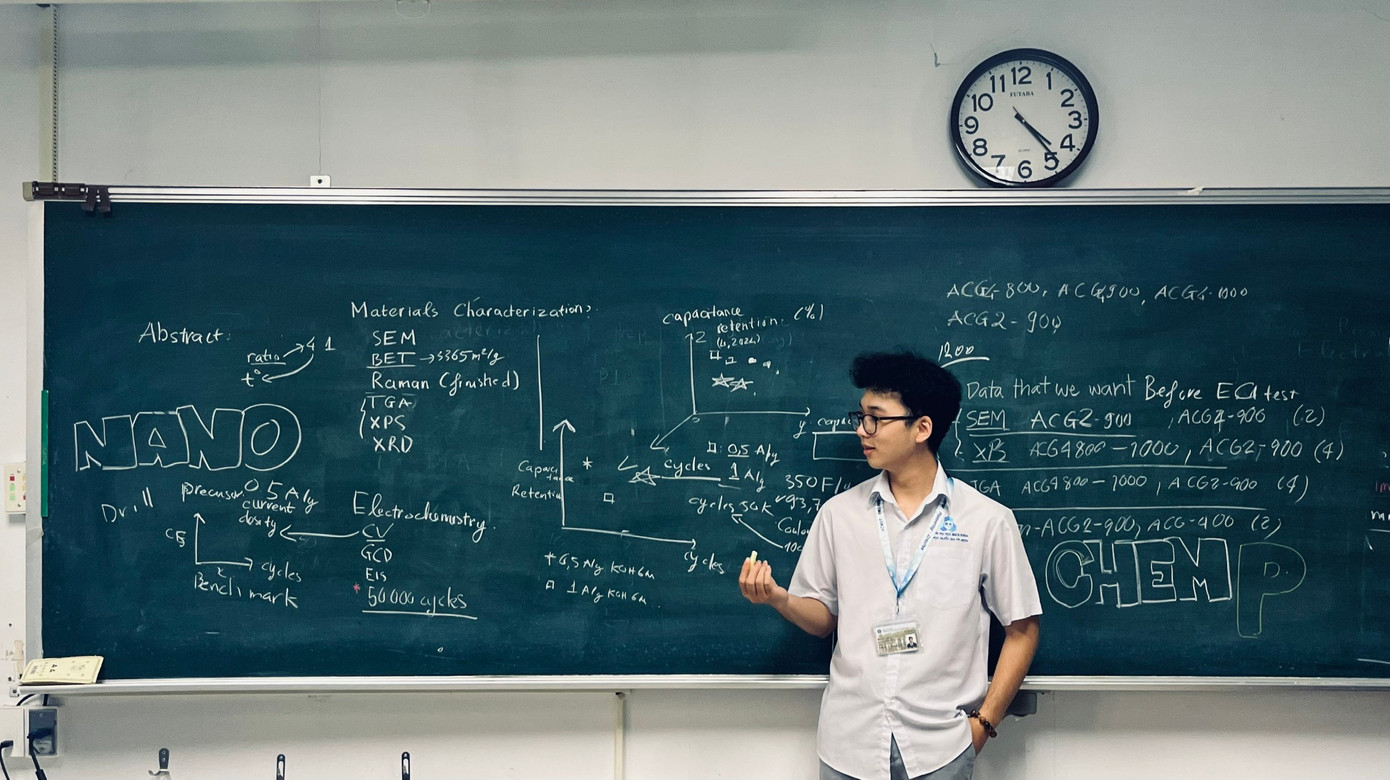 11 12 1
10 2
9 3
8 4
7 6 5
FUTABA
Abstract:
ratio 4 1
t°
NANO
Drill
precursor 0.5 A/g
current
cycles
Benchmark
Materials Characterization:
SEM
BET → 3365 m²/g
Raman (finished)
TGA
XPS
XRD
Electrochemistry.
CV
GCD
EIS
* 50 000 cycles
capacitance
retention. (%)
y
cycles
: 0,5 A/g
1 A/g
cycles 50K
350 F/g
Retention
cycles
+ 0,5 A/g KOH 6M
1 A/g KOH 6M
ACG4-800, ACG4900, ACG4-1000
ACG2-900
1200
Data that we want Before ECh test
SEM ACG2-900, ACG4-900 (2)
XPS ACG4800-1000, ACG2-900 (4)
TGA ACG4800-1000, ACG2-900 (4)
n-ACG2-900, ACG-400 (2)
CHEM P
D.